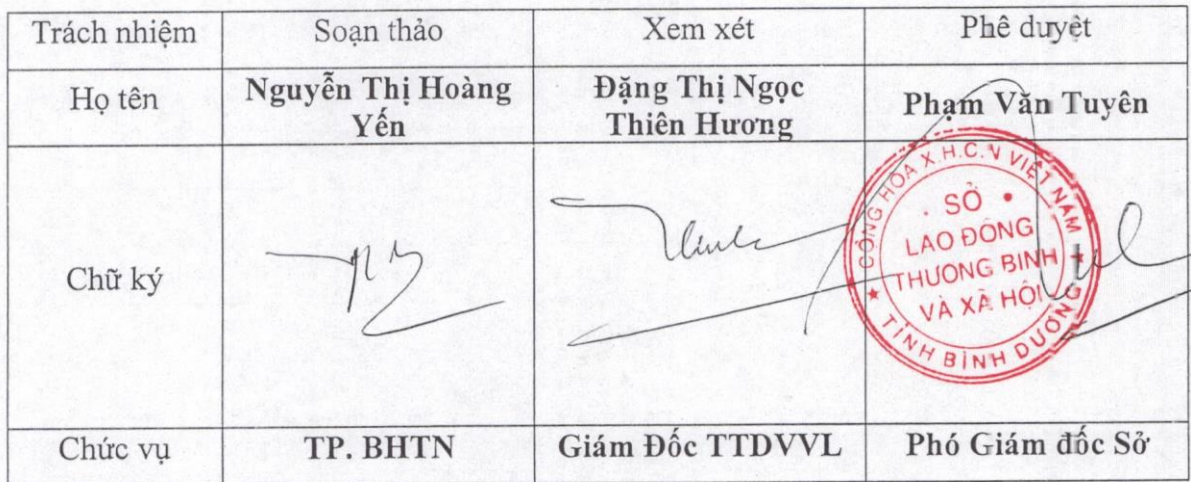 Trách nhiệm Soạn thảo Xem xét Phê duyệt
Họ tên Nguyễn Thị Hoàng Yến Đặng Thị Ngọc Thiên Hương Phạm Văn Tuyên
Chữ ký
CỘNG HÒA X.H.C.N VIỆT NAM
SỞ
LAO ĐỘNG
THƯƠNG BINH
VÀ XÃ HỘI
TỈNH BÌNH DƯƠNG
Chức vụ TP. BHTN Giám Đốc TTDVVL Phó Giám đốc Sở